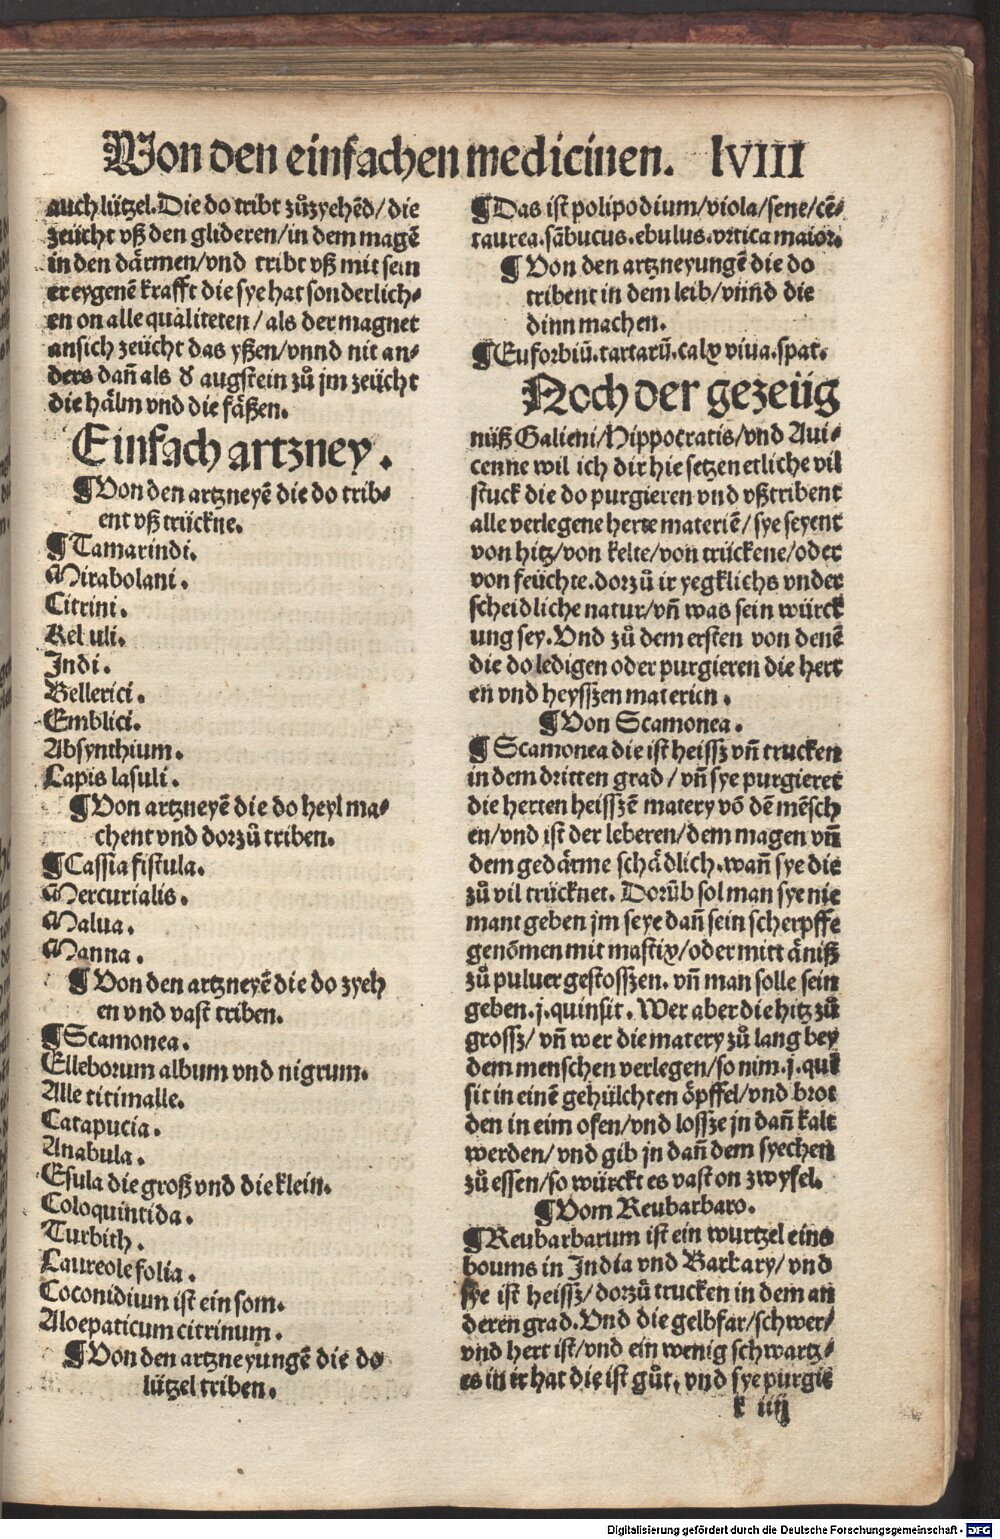 Von den einfachen medicinen. lVIII
auch lützel. Die do tribt zůzyehēd/die
zeücht vß den glideren/in dem magē
in den därmen/vnd tribt vß mit sein
er eygenē krafft die sye hat sonderlich⸗
en on alle qualiteten/als der magnet
an sich zeücht das yßen/vnnd nit an⸗
ders dañ als d augstein zů jm zeücht
die hälm vnd die fäßen.
Einfach artzney.
¶Von den artzneyē die do trib⸗
ent vß trückne.
¶Tamarindi.
Mirabolani.
Citrini.
Keb uli.
Indi.
Bellerici.
Emblici.
Absynthium.
Lapis lasuli.
¶Von artzneyē die do heyl ma⸗
chent vnd dorzů triben.
¶Cassia fistula.
Mercurialis.
Malua.
Manna.
¶Von den artzneyē die do zyeh
en vnd vast triben.
¶Scamonea.
Elleborum album vnd nigrum.
Alle titimalle.
Catapucia.
Anabula.
Esula die groß vnd die klein.
Coloquintida.
Turbith.
Laureole folia.
Coconidium ist ein som.
Aloepaticum citrinum.
¶Von den artzneyungē die do
lützel triben.
¶Das ist polipodium/viola/sene/cē⸗
taurea.sābucus.ebulus.vrtica maior.
¶Von den artzneyungē die do
tribent in dem leib/vnnd die
dinn machen.
¶Euforbiū.tartarū.calx viua.spat.
Noch der gezeüg
nüß Galieni/Hippocratis/vnd Aui⸗
cenne wil ich dir hie setzen etliche vil
stuck die do purgieren vnd vßtribent
alle verlegene herte materiē/sye seyent
von hitz/von kelte/von trückene/oder
von feüchte.dorzů ir yegklichs vnder
scheidliche natur/vñ was sein würck
ung sey. Vnd zů dem ersten von denē
die do ledigen oder purgieren die hert
en vnd heyssen materien.
¶Von Scamonea.
¶Scamonea die ist heissz vñ trucken
in dem dritten grad/vñ sye purgieret
die herten heisszē matery vō dē mēsch
en/vnd ist der leberen/dem magen vñ
dem gedärme schädlich.wañ sye die
zů vil trücknet. Dorüb sol man sye nie
mant geben jm seye dañ sein scherpffe
genōmen mit mastix/oder mitt äniß
zů puluer gestosszen. vñ man solle sein
geben.j.quinsit. Wer aber die hitz zů
grossz/vñ wer die matery zů lang bey
dem menschen verlegen/so nim.j.quī
sit in einē gehülchten öpffel/vnd brot
den in eim ofen/vnd lossze jn dañ kalt
werden/vnd gib jn dañ dem syechen
zů essen/so würckt es vast on zwyfel.
¶Vom Reubarbaro.
¶Reubarbarum ist ein wurtzel eins
boums in India vnd Barbary/vnd
sye ist heissz/dorzů trucken in dem an
deren grad. Vnd die gelbfar/schwer/
vnd hert ist/vnd ein wenig schwartz⸗
es in ir hat die ist gůt. vnd sye purgie
k iiij
Digitalisierung gefördert durch die Deutsche Forschungsgemeinschaft - DFG